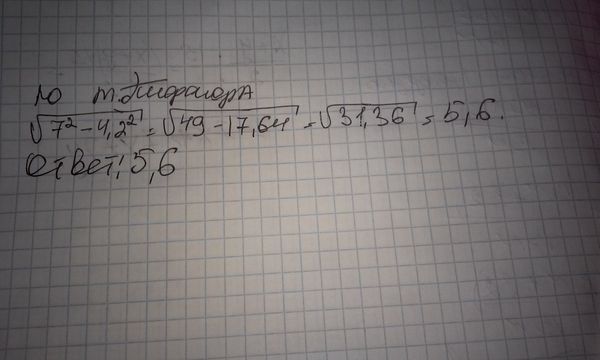 по т. Пифагора
√7² - 4,2² = √49 - 17,64 = √31,36 = 5,6.
Ответ: 5,6